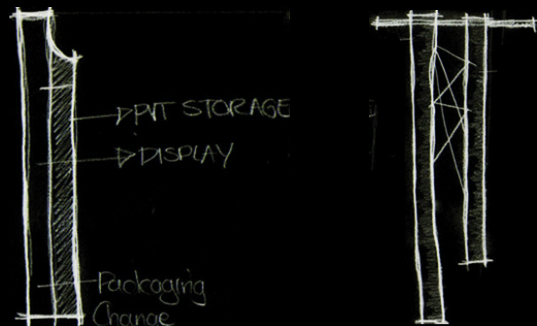 PVT STORAGE
DISPLAY
Packaging
Change